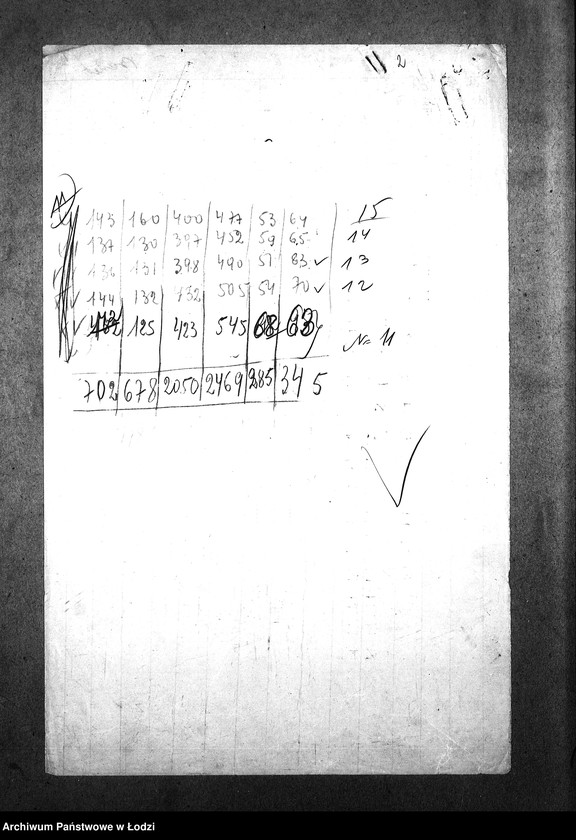 2
143 160 400 477 53 64 15
137 130 397 452 59 65 14
136 131 398 490 57 83 ✓ 13
144 132 432 505 54 70 ✓ 12
125 423 545 № 11
702 678 2050 2469 285 345
Archiwum Państwowe w Łodzi